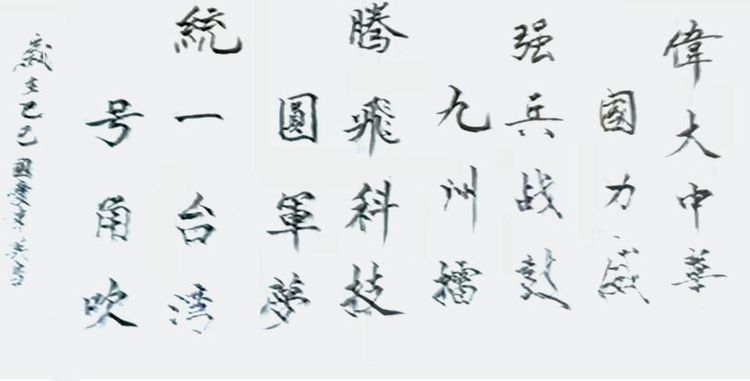 偉大中華
國力威
强兵战鼓
九州擂
騰飛科技
圓軍夢
統一台湾
号角吹
國慶